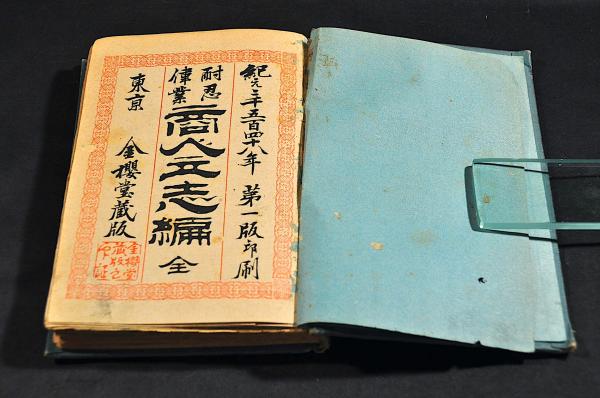 紀元二千五百四十八年 第一版印刷
耐忍
偉業
商人立志編 全
東亰 金櫻堂藏版
金櫻堂
藏版之